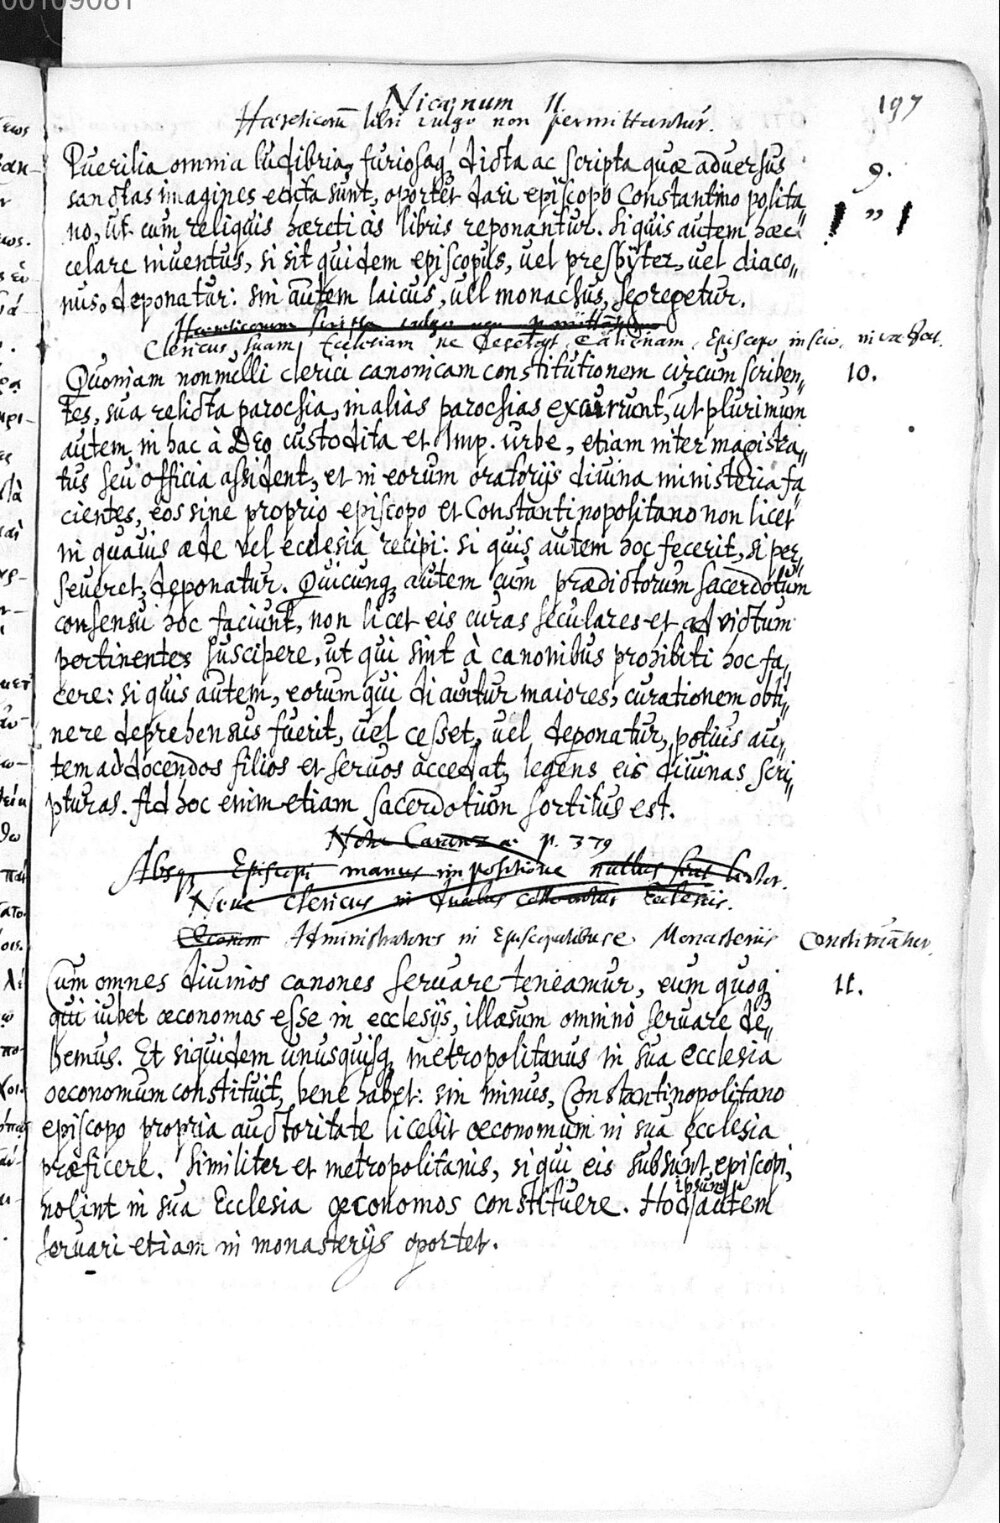 00109081
Nicænum II.
197
Hæreticorũ libri vulgo non permittantur.
Puerilia omnia ludibria, furiosaq; dicta ac scripta quæ aduersus
9.
sanctas imagines edita sunt, oportet dari episcopo Constantinopolita„
no, ut cum reliquis hæreticis libris reponantur. Si quis autem hæc
celare inuentus, si sit quidem episcopus, uel presbyter, uel diaco„
nus, deponatur: sin autem laicus, uel monachus, segregetur.
Hæreticorum scripta vulgo non permittantur
Clericus suam Ecclesiam ne deserat, alienam, Episcopo inscio,
Quoniam nonnulli clerici canonicam constitutionem circumscriben„
10.
tes, sua relicta parochia, in alias parochias excurrunt, ut plurimum
autem in hac à Deo custodita et Imp. urbe, etiam inter magistra„
tus seu officia assident, et in eorum oratorijs diuina ministeria fa„
cientes, eos sine proprio episcopo et Constantinopolitano non licet
in quauis æde vel ecclesia recipi: si quis autem hoc fecerit, si per„
seueret, deponatur. Quicunq; autem cum prædictorum sacerdotum
consensu hoc faciunt, non licet eis curas seculares et ad victum
pertinentes suscipere, ut qui sint à canonibus prohibiti hoc fa„
cere: si quis autem, eorum qui dicuntur maiores, curationem obti„
nere deprehensus fuerit, uel cesset, uel deponatur, potius au„
tem ad docendos filios et seruos accedat, legens eis diuinas scri„
pturas. Ad hoc enim etiam sacerdotium sortitus est.
Nota Caranza p. 379
Absq; Episcopi manus impositione nullus fiat lector.
Neue Clericus in duabus collocetur Ecclesiis.
Œconom Administratores in Episcopatibus e Monasteriis Constituantur.
Cum omnes diuinos canones seruare teneamur, eum quoq;
11.
qui iubet œconomos esse in ecclesijs, illæsum omninò seruare de„
bemus. Et siquidem unusquisq; metropolitanus in sua ecclesia
oeconomum constituit, bene habet: sin minus, Constantinopolitano
episcopo propria auctoritate licebit œconomum in sua ecclesia
præficere. Similiter et metropolitanis, si qui eis subsunt episcopi,
nolint in sua Ecclesia œconomos constituere. Hoc ipsum autem
seruari etiam in monasterijs oportet.